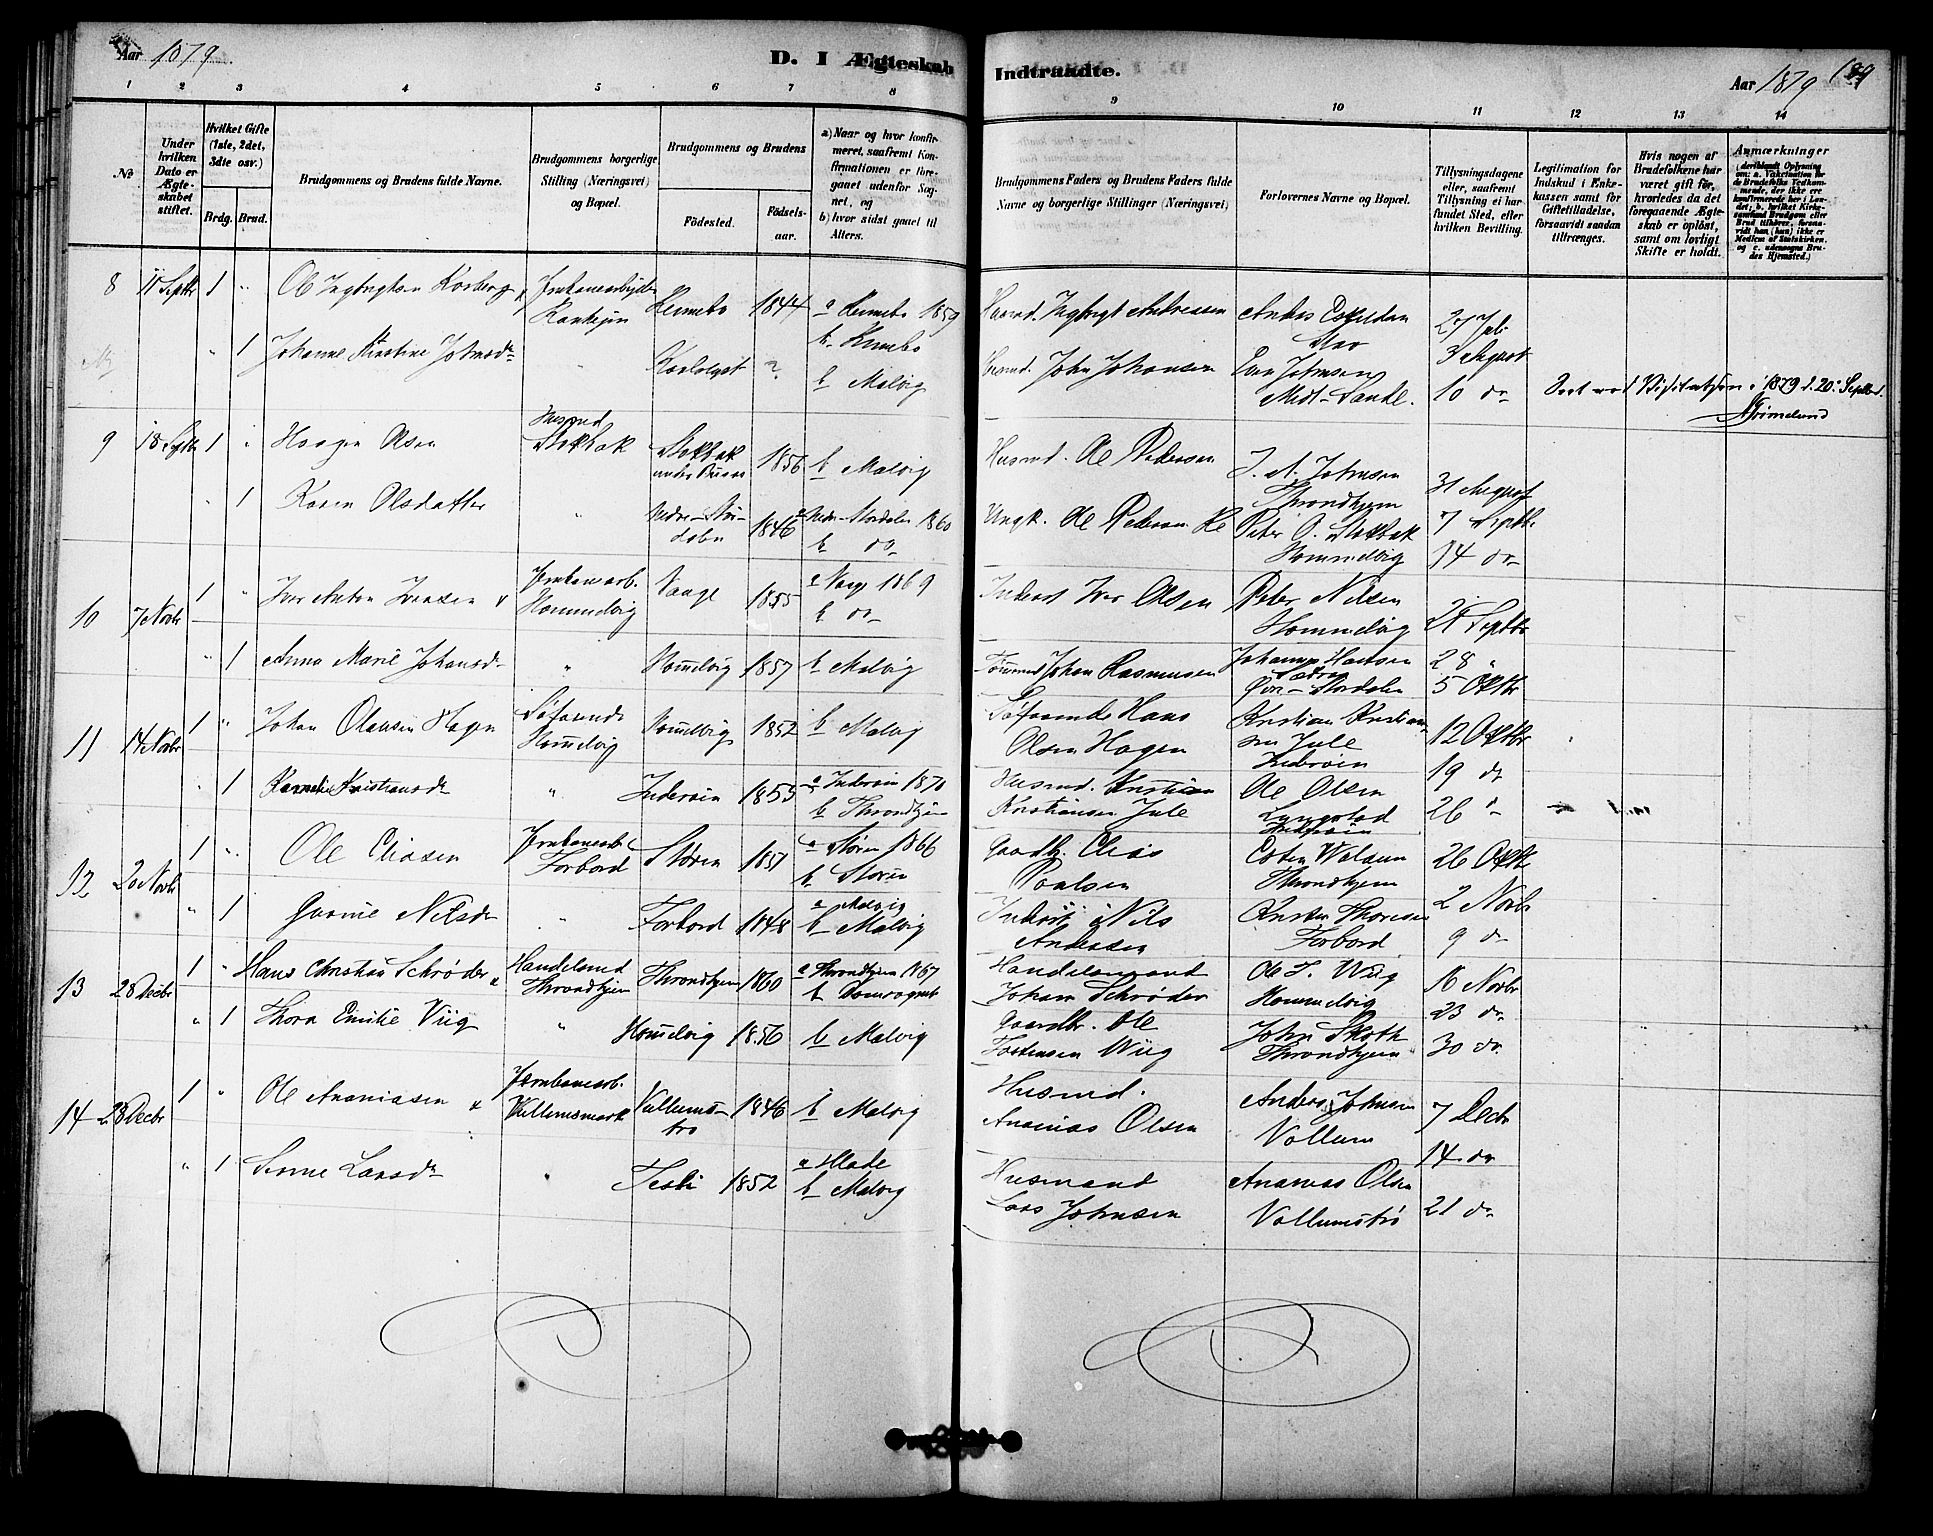 Aar 1879.
D. I Ægteskab Indtraadte.
Aar 1879
189
1 2 3 4 5 6 7 8 9 10 11 12 13 14
No
Under hvilken Dato er Ægteskabet stiftet.
Hvilket Gifte (1ste, 2det, 3die osv.)
Brdg. Brud.
Brudgommens og Brudens fulde Navne.
Brudgommens borgerlige Stilling (Næringsvei) og Bopæl.
Brudgommens og Brudens
Fødested. Fødselsaar.
a) Naar og hvor konfirmeret, saafremt Konfirmationen er foregaaet udenfor Sognet, og
b) hvor sidst gaaet til Alters.
Brudgommens Faders og Brudens Faders fulde Navne og borgerlige Stillinger (Næringsvei)
Forlovernes Navne og Bopæl.
Tillysningsdagene eller, saafremt Tillysning ei har fundet Sted, efter hvilken Bevilling.
Legitimation for Indskud i Enkekassen samt for Giftetilladelse, forsaavidt saadan tiltrænges.
Hvis nogen af Brudefolkene har været gift før, hvorledes da det foregaaende Ægteskab er opløst, samt om lovligt Skifte er holdt.
Anmærkninger (deriblandt Oplysning om: a. Vakcination for de Brudefolks Vedkommende, der ikke ere konfirmerede her i Landet; b. hvilket Kirkesamfund Brudgom eller Brud tilhører, forsaavidt han (hun) ikke er Medlem af Statskirken, og c. udenogns Brudes Hjemsted.)
8 11 Septbr 1 " Ole Ingbrigtsen Korsberg Jernbanearbeider Rennebo 1844 a Rennebo 1859 Husmd. Ingbrigt Andreassen Anders 27 Juli
b. Rennebo 3 August
" 1 Johanne Kirstine Johnsdr " Karlslyst ? b Malvig Husmd. John Johansen John Johnsen 10 do
Midt-Sande.
Seet ved Visitatsen i 1879 d. 20. Septbr.
Grimelund
9 18 Septbr 1 " Haagen Olsen Husmd Stokbak Stokbak 1856 b Malvig Husmd. Ole Pedersen J. A. Johnsen 31 August
Throndhjem
" 1 Karen Olsdatter " Nedre-Stördalen 1846 a Nedr-Stordalen 1860 Ungk. Ole Pedersen Peter O. Stokbak 7 Septbr
b do Hommelvig 14 do
10 7 Novbr 1 " Iver Anton Iversen Jernbanearb. Hommelvig Vaage 1855 a Vaage 1869 Inderst Iver Olsen Peter Nilsen 21 Septbr
b do Hommelvig
" 1 Anna Marie Johansdr " Hommelvig 1857 b Malvig Tömmermd Johan Rasmussen Johannes Hansen 28 "
Stordalen 5 Oktbr
11 14 Novbr 1 " Johan Olausen Hagen Söfarende Hommelvig Hommelvig 1852 b Malvig Söfarende Hans Olsen Hagen Kristian Kristiansen Jule 12 Oktbr
Inderöen
" 1 Karnelie Kristiansdr " Inderöen 1855 a Inderöen 1870 Husmd. Kristian Kristiansen Jule Ole Olsen 19 do
b Throndhjem Inderöen 26 "
12 20 Novbr 1 " Ole Eliasen Jernbanearb. Forbord Stören 1851 a Stören 1866 Gaardb. Elias Poulsen Esten 26 Oktbr
b Stören Throndhjem
" 1 Gurine Nilsdr " Forbord 1848 a Malvig Inderst Nils Andersen Thoresen 2 Novbr
b Malvig Forbord 9 do
13 28 Decbr 1 " Hans Christian Schrøder Handelsmd Throndhjem Throndhjem 1860 a Throndhjem Handelsmand Johan Schrøder Ole T. Wiig 16 Novbr
b Domsognet Hommelvig 23 do
" 1 Thora Emilie Viig " Hommelvig 1856 b Malvig Gaardbr. Ole Tostensen Wiig John 30 do
Throndhjem
14 28 Decbr 1 " Ole Ananiasen Jernbanearb. Vullumsmark Vullumstrø 1846 b Malvig Husmd. Ananias Olsen Anders Johnsen 7 Decbr
Vollum 14 do
" 1 Larsdr " Tesli 1852 a Hlade Husmand Lars Johnsen Ananias Olsen 21 do
b Malvig Vollumströ